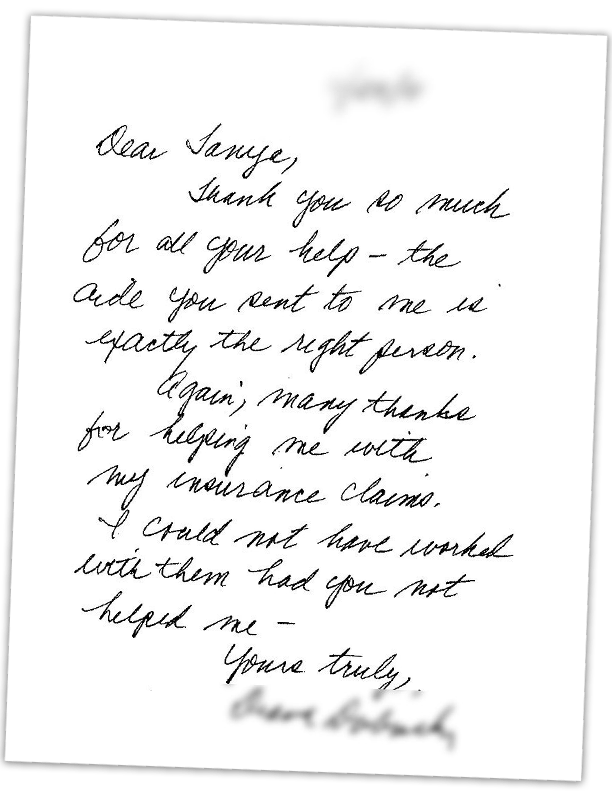 Dear Tanya,
Thank you so much
for all your help – the
aide you sent to me is
exactly the right person.
Again, many thanks
for helping me with
my insurance claims.
I could not have worked
with them had you not
helped me –
Yours truly,